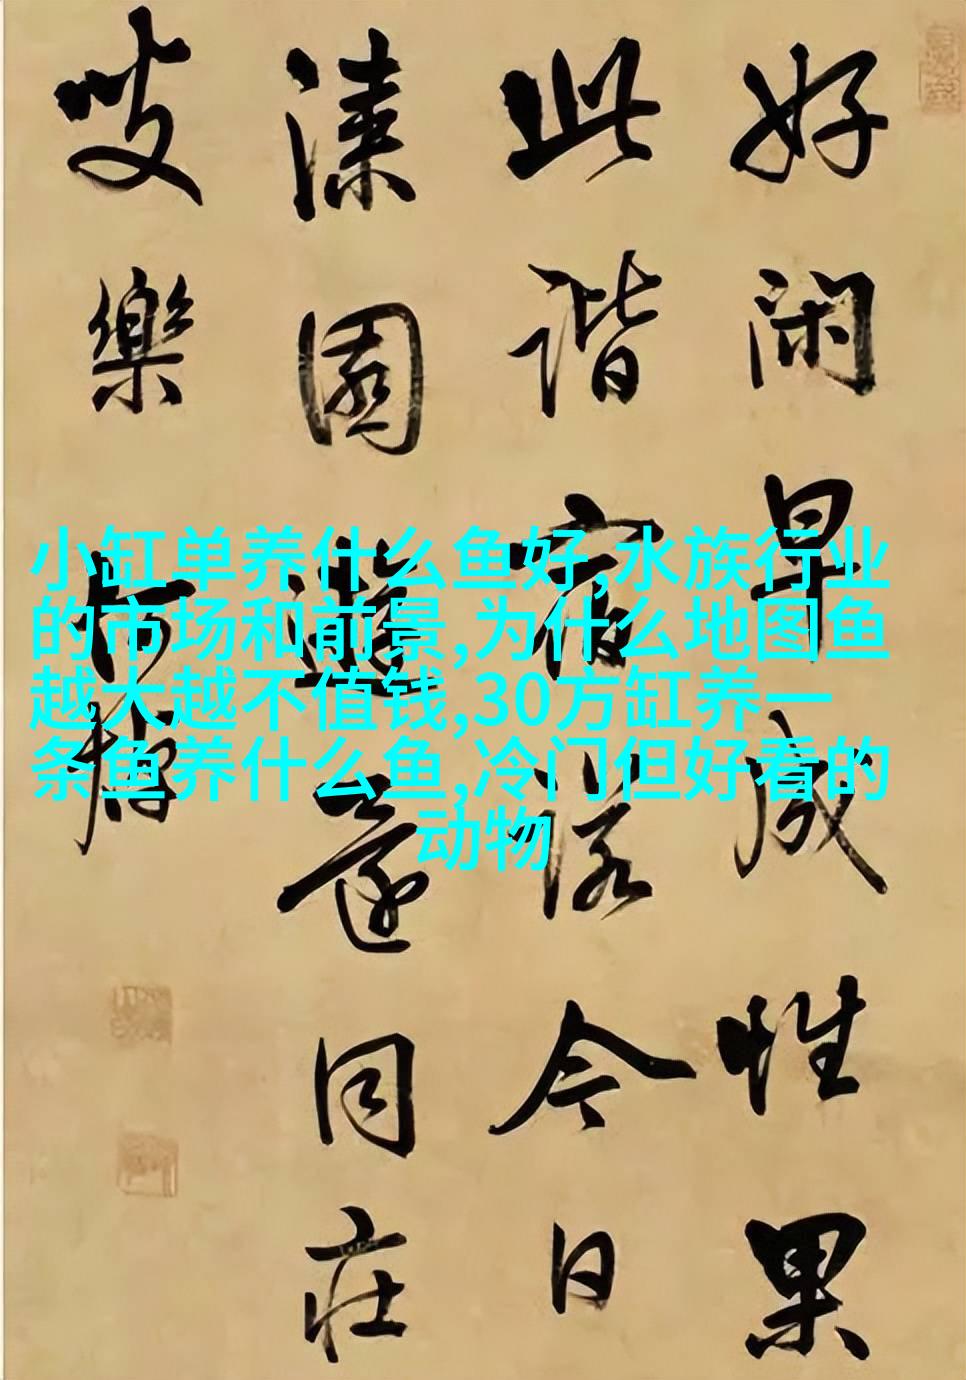 好闲早成性果
此谐宿诺今日
漆園遊還同庄
叟樂
小缸单养什么鱼好,水族行业
的市场和前景,为什么地图鱼
越大越不值钱,30方缸养一
条鱼养什么鱼,冷门但好看的
动物